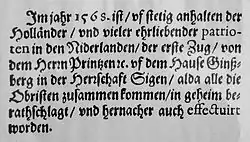 Im jahr 1568. ist / vf stetig anhalten der
Holländer / vnd vieler ehrliebender patrio-
ten in den Niderlanden / der erste Zug / von
dem Herrn Prinzen ꝛc. vf dem Hause Ginß-
berg in der Herrschaft Sigen / alda alle die
Obristen zusammen kommen / in geheim be-
rathschlagt / vnd hernacher auch effectuirt
worden.